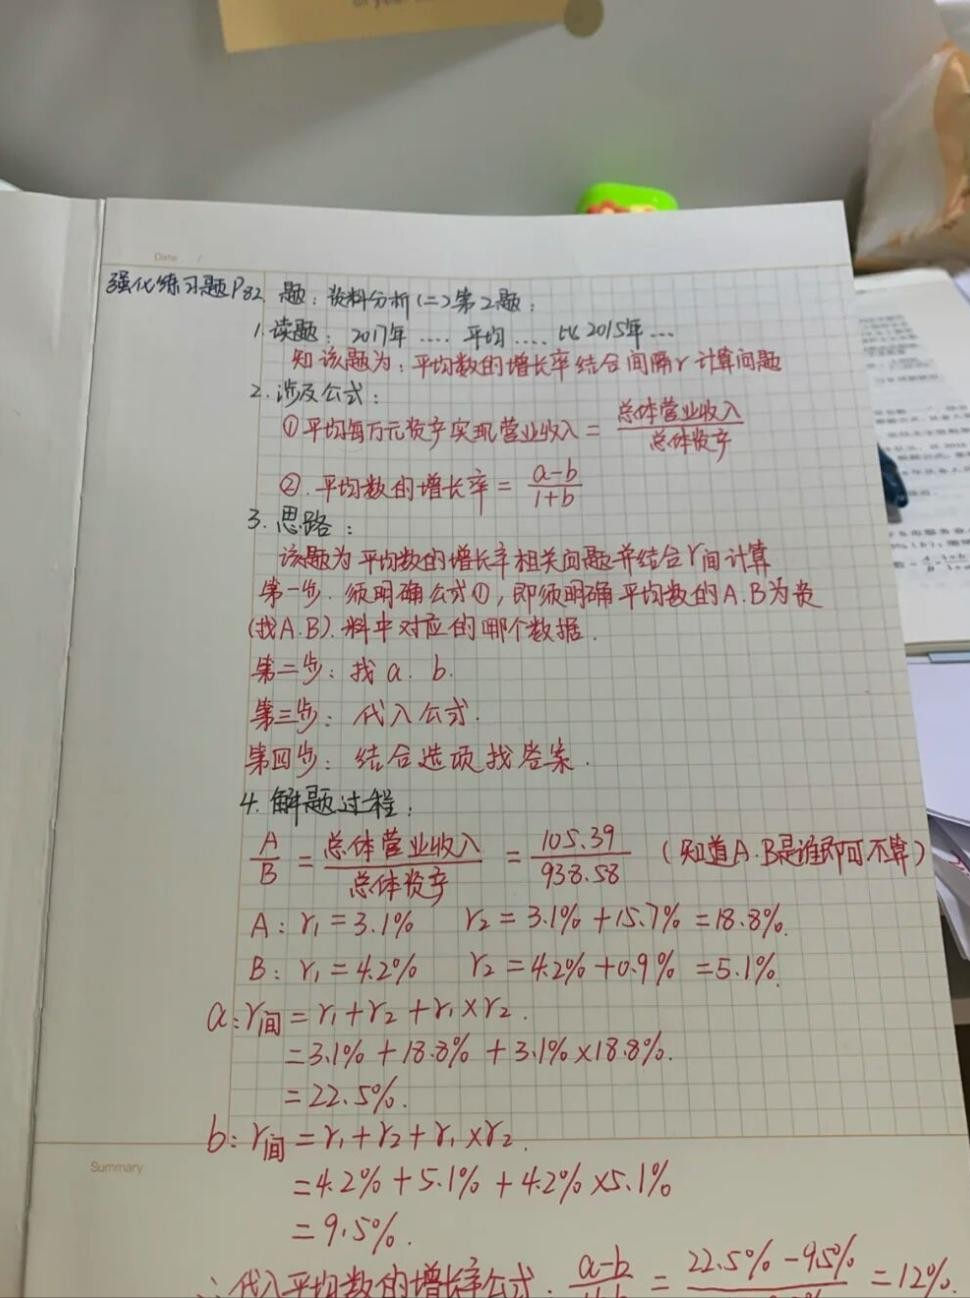 of your
Date /
强化练习题P82. 题:资料分析(二)第2题:
1.读题: 2017年 .... 平均 .... 比 2015年 ...
知该题为:平均数的增长率结合间隔r计算问题
2.涉及公式:
①平均每万元资产实现营业收入 = 总体营业收入/总体资产
②.平均数的增长率 = a-b/1+b
3.思路:
该题为平均数的增长率相关问题并结合r间计算
第一步.须明确公式①,即须明确平均数的A.B为资
(找A.B).料中对应的哪个数据.
第二步:找 a. b.
第三步:代入公式.
第四步:结合选项找答案.
4.解题过程:
A/B = 总体营业收入/总体资产 = 105.39/938.58 (知道A.B是谁即可不算)
A: r₁=3.1% r₂=3.1%+15.7%=18.8%.
B: r₁=4.2% r₂=4.2%+0.9%=5.1%.
a:r间=r₁+r₂+r₁×r₂.
=3.1%+18.8%+3.1%×18.8%.
=22.5%.
b:r间=r₁+r₂+r₁×r₂.
Summary
=4.2%+5.1%+4.2%×5.1%
=9.5%.
∴代入平均数的增长率公式. a-b/1+b = 22.5%-9.5% =12%.